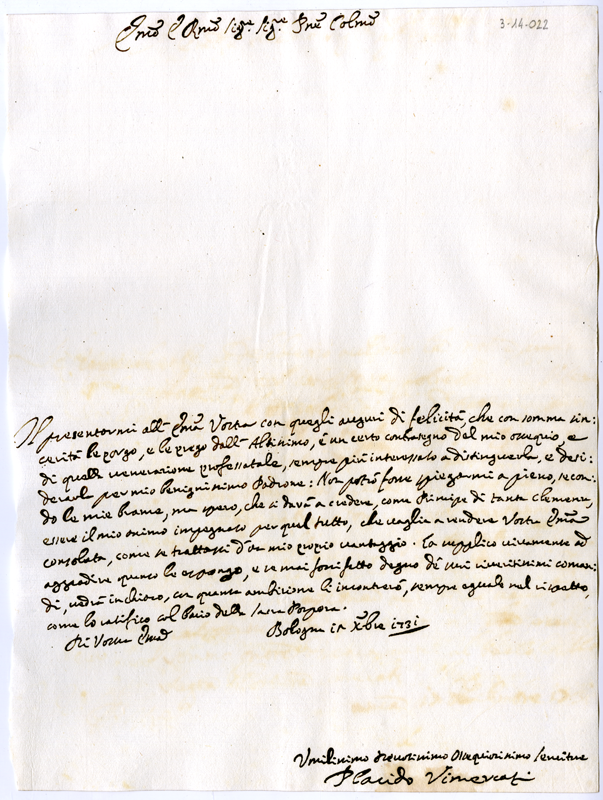 Emo e Rmo Sigre Sigre Pne Colmo
3-14-022
Il presentarmi all' Ema Vostra con quegli auguri di felicità, che con somma sin:
cerità le porgo, e le prego dall' Altissimo, è un certo contrasegno del mio ossequio, e
di quella venerazione professatale, sempre più interessato a distinguerla, e desi:
derarla per mio benignissimo Padrone: Non potrò forse spiegarmi a pieno, secon:
do le mie brame, ma spero, che si darà a credere, come Principe di tanta clemenza,
essere il mio animo impegnato per quel tutto, che vaglia a rendere Vostra Ema
consolata, come se trattassi d'un mio proprio vantaggio. La supplico vivamente ad
aggradire quanto le espongo, e se mai fossi fatto degno de' suoi riveritissimi coman:
di, vedrà in chiaro, con quanta ambizione li incontrerò, sempre eguale nel rispetto,
come lo ratifico col bacio della Sacra Porpora.
Di Vostra Ema
Bologna Xbre 1731
Umilissimo Devotissimo Ossequiosissimo Servitore
Placido Vimercati